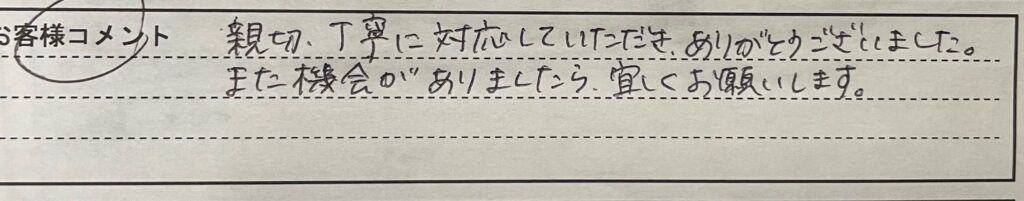 お客様コメント 親切、丁寧に対応していただき、ありがとうございました。
また機会がありましたら、宜しくお願いします。